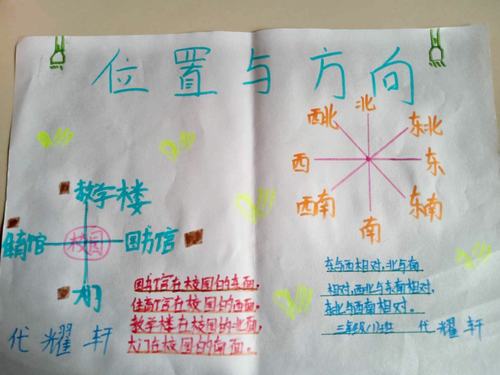 位置与方向
北
西北 东北
西 东
西南 东南
南
教学楼
体育馆 校园 图书馆
大门
图书馆在校园的东面。
体育馆在校园的西面。
教学楼在校园的北面。
大门在校园的南面。
东与西相对,北与南
相对,西北与东南相对,
东北与西南相对。
三年级(1)班 代耀轩
代耀轩